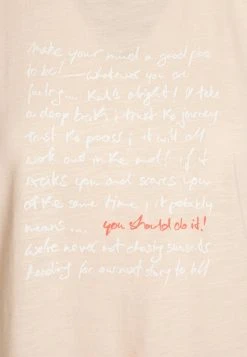 make your mind a good place
to be! whatever you are
feeling.... that's alright! I'll take
a deep breath & trust the journey
trust the process; it will all
work out in the end! if it
excites you and scares you
at the same time, it probably
means.... you should do it!
we're never not chasing sunsets
heading for our next story to tell